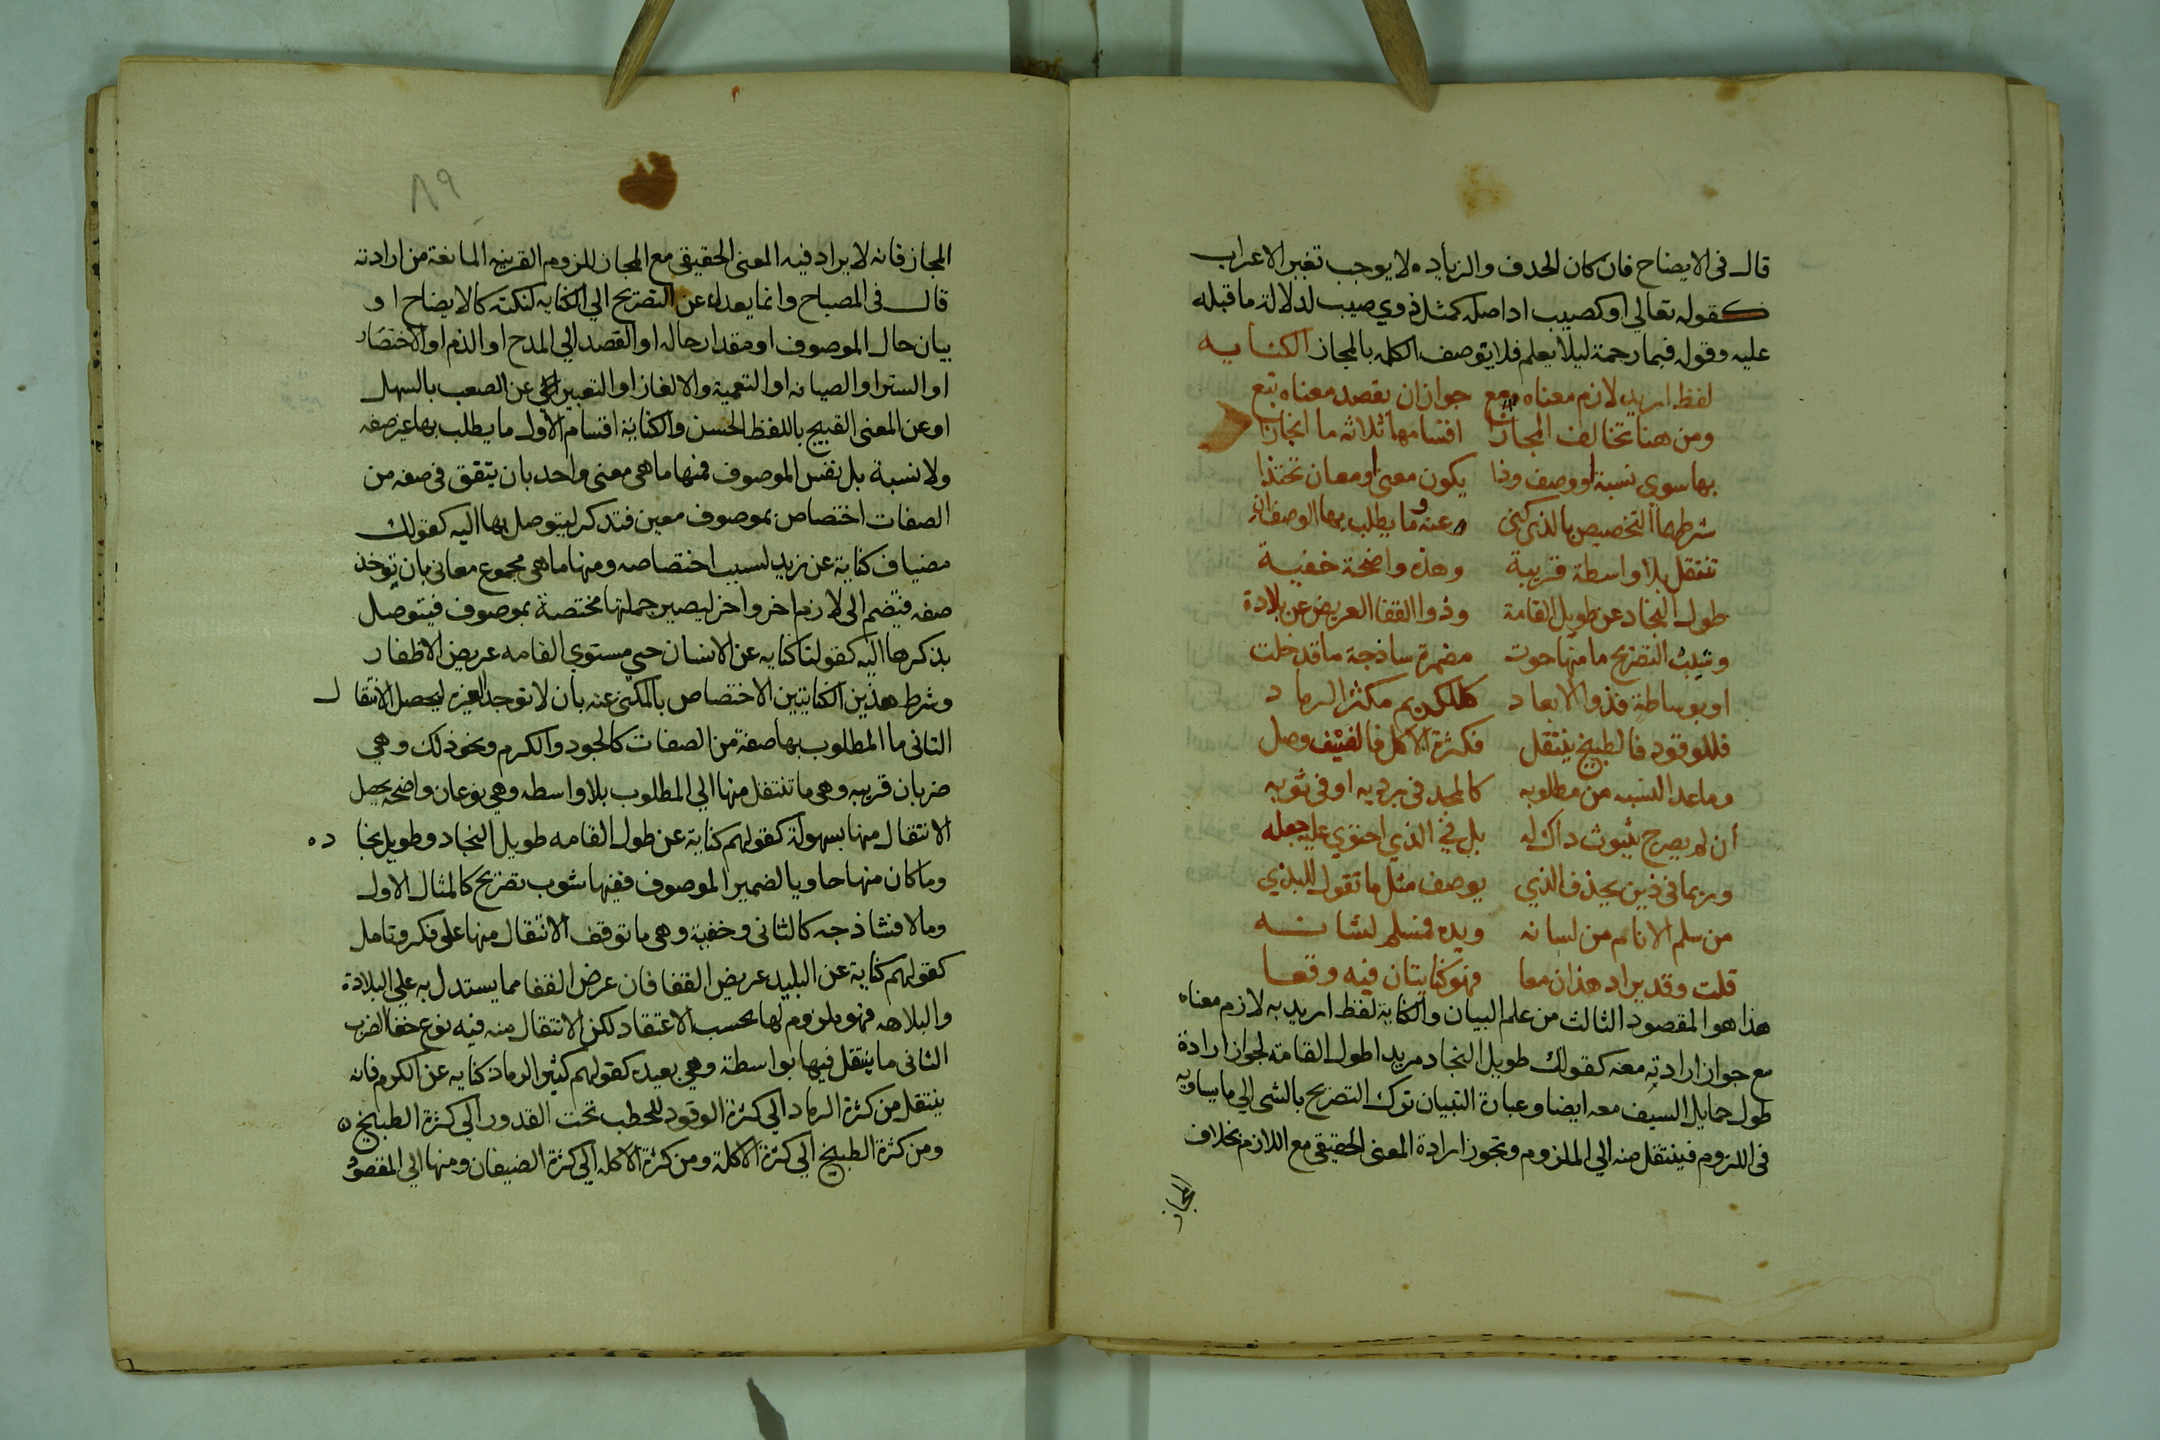 قال في الايضاح فان كان الحدف والزياده لا يوجب تغير الاعراب
كقوله تعالي اوكصيب اداصله كمثل ذوي صيب لدلالة ما قبله
عليه وقوله فبما رحمة ليلا يعلم فلا يتوصف الكله بالمجاز الكنايه
لفظ اريد لازم معناه مع جواز ان يقصد معناه تبع
ومن هنا تخالف المجازا اقسامها ثلاثه ما انجازا
بها سوي نسبة او وصف وذا يكون معنى او معان تحتذا
شرطهما التخصيص بالذكر كني عنه وما يطلب بها الوصف فان
تنتقل بلا واسطة قريبة وهذه واضحة خفية
طول النجاد عن طويل القامة وذوا القفا العريض عن بلادة
وشيب التصريح ما منها حوت مضمرة ساذجة ما قد خلت
او بوساطة فذو الابعاد كالكريم مكثر الرماد
فللوقود فالطبيخ ينتقل فكثرة الاكل فالضيف وصل
وما عدا النسبه من مطلوبه كالمجد في برديه او في ثوبه
ان لم يصرح بثبوت داك له بل في الذي احتوي عليه جعله
وربما في ذين يحذف الذي يوصف مثل ما تقول للبذي
من سلم الانام من لسانه ويده فمسلم لشانه
قلت وقد يراد هذان معا فهو كنايتان فيه وقعا
هذا هو المقصود الثالث من علم البيان والكناية لفظ اريد به لازم معناه
مع جواز ارادته معه كقولك طويل النجاد مريدا طول القامة لجواز ارادة
طول حمايل السيف معه ايضا وعبارة التبيان ترك التصريح بالشي الي ما يساويه
في اللزوم فينتقل منه الي الملزوم وتجوز ارادة المعنى الحقيقي مع اللازم بخلاف
المجاز
٨٩
المجاز فانه لا يراد فيه المعنى الحقيقي مع المجاز للزوم القرينه المانعة من ارادته
قال في المصباح وانما يعدل عن التصريح الي الكنايه لنكتة كالايضاح او
بيان حال الموصوف او مقدار حاله او القصد الي المدح او الذم او الاختصار
او الستر او الصيانه او التعمية والالغاز او التعبير عن الصعب بالسهل
او عن المعنى القبيح باللفظ الحسن والكناية اقسام الاول ما يطلب بها غير صفه
ولا نسبة بل نفس الموصوف فمنها ما هي معنى واحد بان يتفق في صفه من
الصفات اختصاص بموصوف معين فتدكر ليتوصل بها اليه كقولك
مضياف كناية عن زيد لسبب اختصاصه ومنها ما هي مجموع معاني بان توخذ
صفه فتضم الى لازم اخر واخر ليصير جملتها مختصة بموصوف فيتوصل
بذكرها اليه كقولنا كنايه عن الانسان حي مستوي القامه عريض الاظفار
وشرط هذين الكنايتين الاختصاص بالمكنى عنه بان لا توجد لغيره ليحصل الانتقال
الثاني ما المطلوب بها صفة من الصفات كالجود والكرم ونحو ذلك وهي
ضربان قريبه وهي ما تنتقل منها الي المطلوب بلا واسطه وهي نوعان واضحه يحصل
الانتقال منها بسهولة كقولهم كناية عن طول القامه طويل النجاد وطويل نجاده
وما كان منها حاويا لضمير الموصوف ففيها شوب تصريح كالمثال الاول
وما لا فشاذجه كالثاني وخفية وهي ما توقف الانتقال منها على فكر وتامل
كقولهم كناية عن البليد عريض القفا فان عرض القفا مما يستدل به علي البلادة
والبلاهه فهو ملزوم لها بحسب الاعتقاد لكن الانتقال منه فيه نوع خفا الضرب
الثاني ما ينتقل فيها بواسطة وهي بعيده كقولهم كثير الرماد كنايه عن الكرم فانه
ينتقل من كثرة الرماد الي كثرة الوقود للحطب تحت القدور الي كثرة الطبيخ
ومن كثرة الطبيخ الي كثرة الاكلة ومن كثرة الاكله الي كثرة الضيفان ومنها الي المقصود